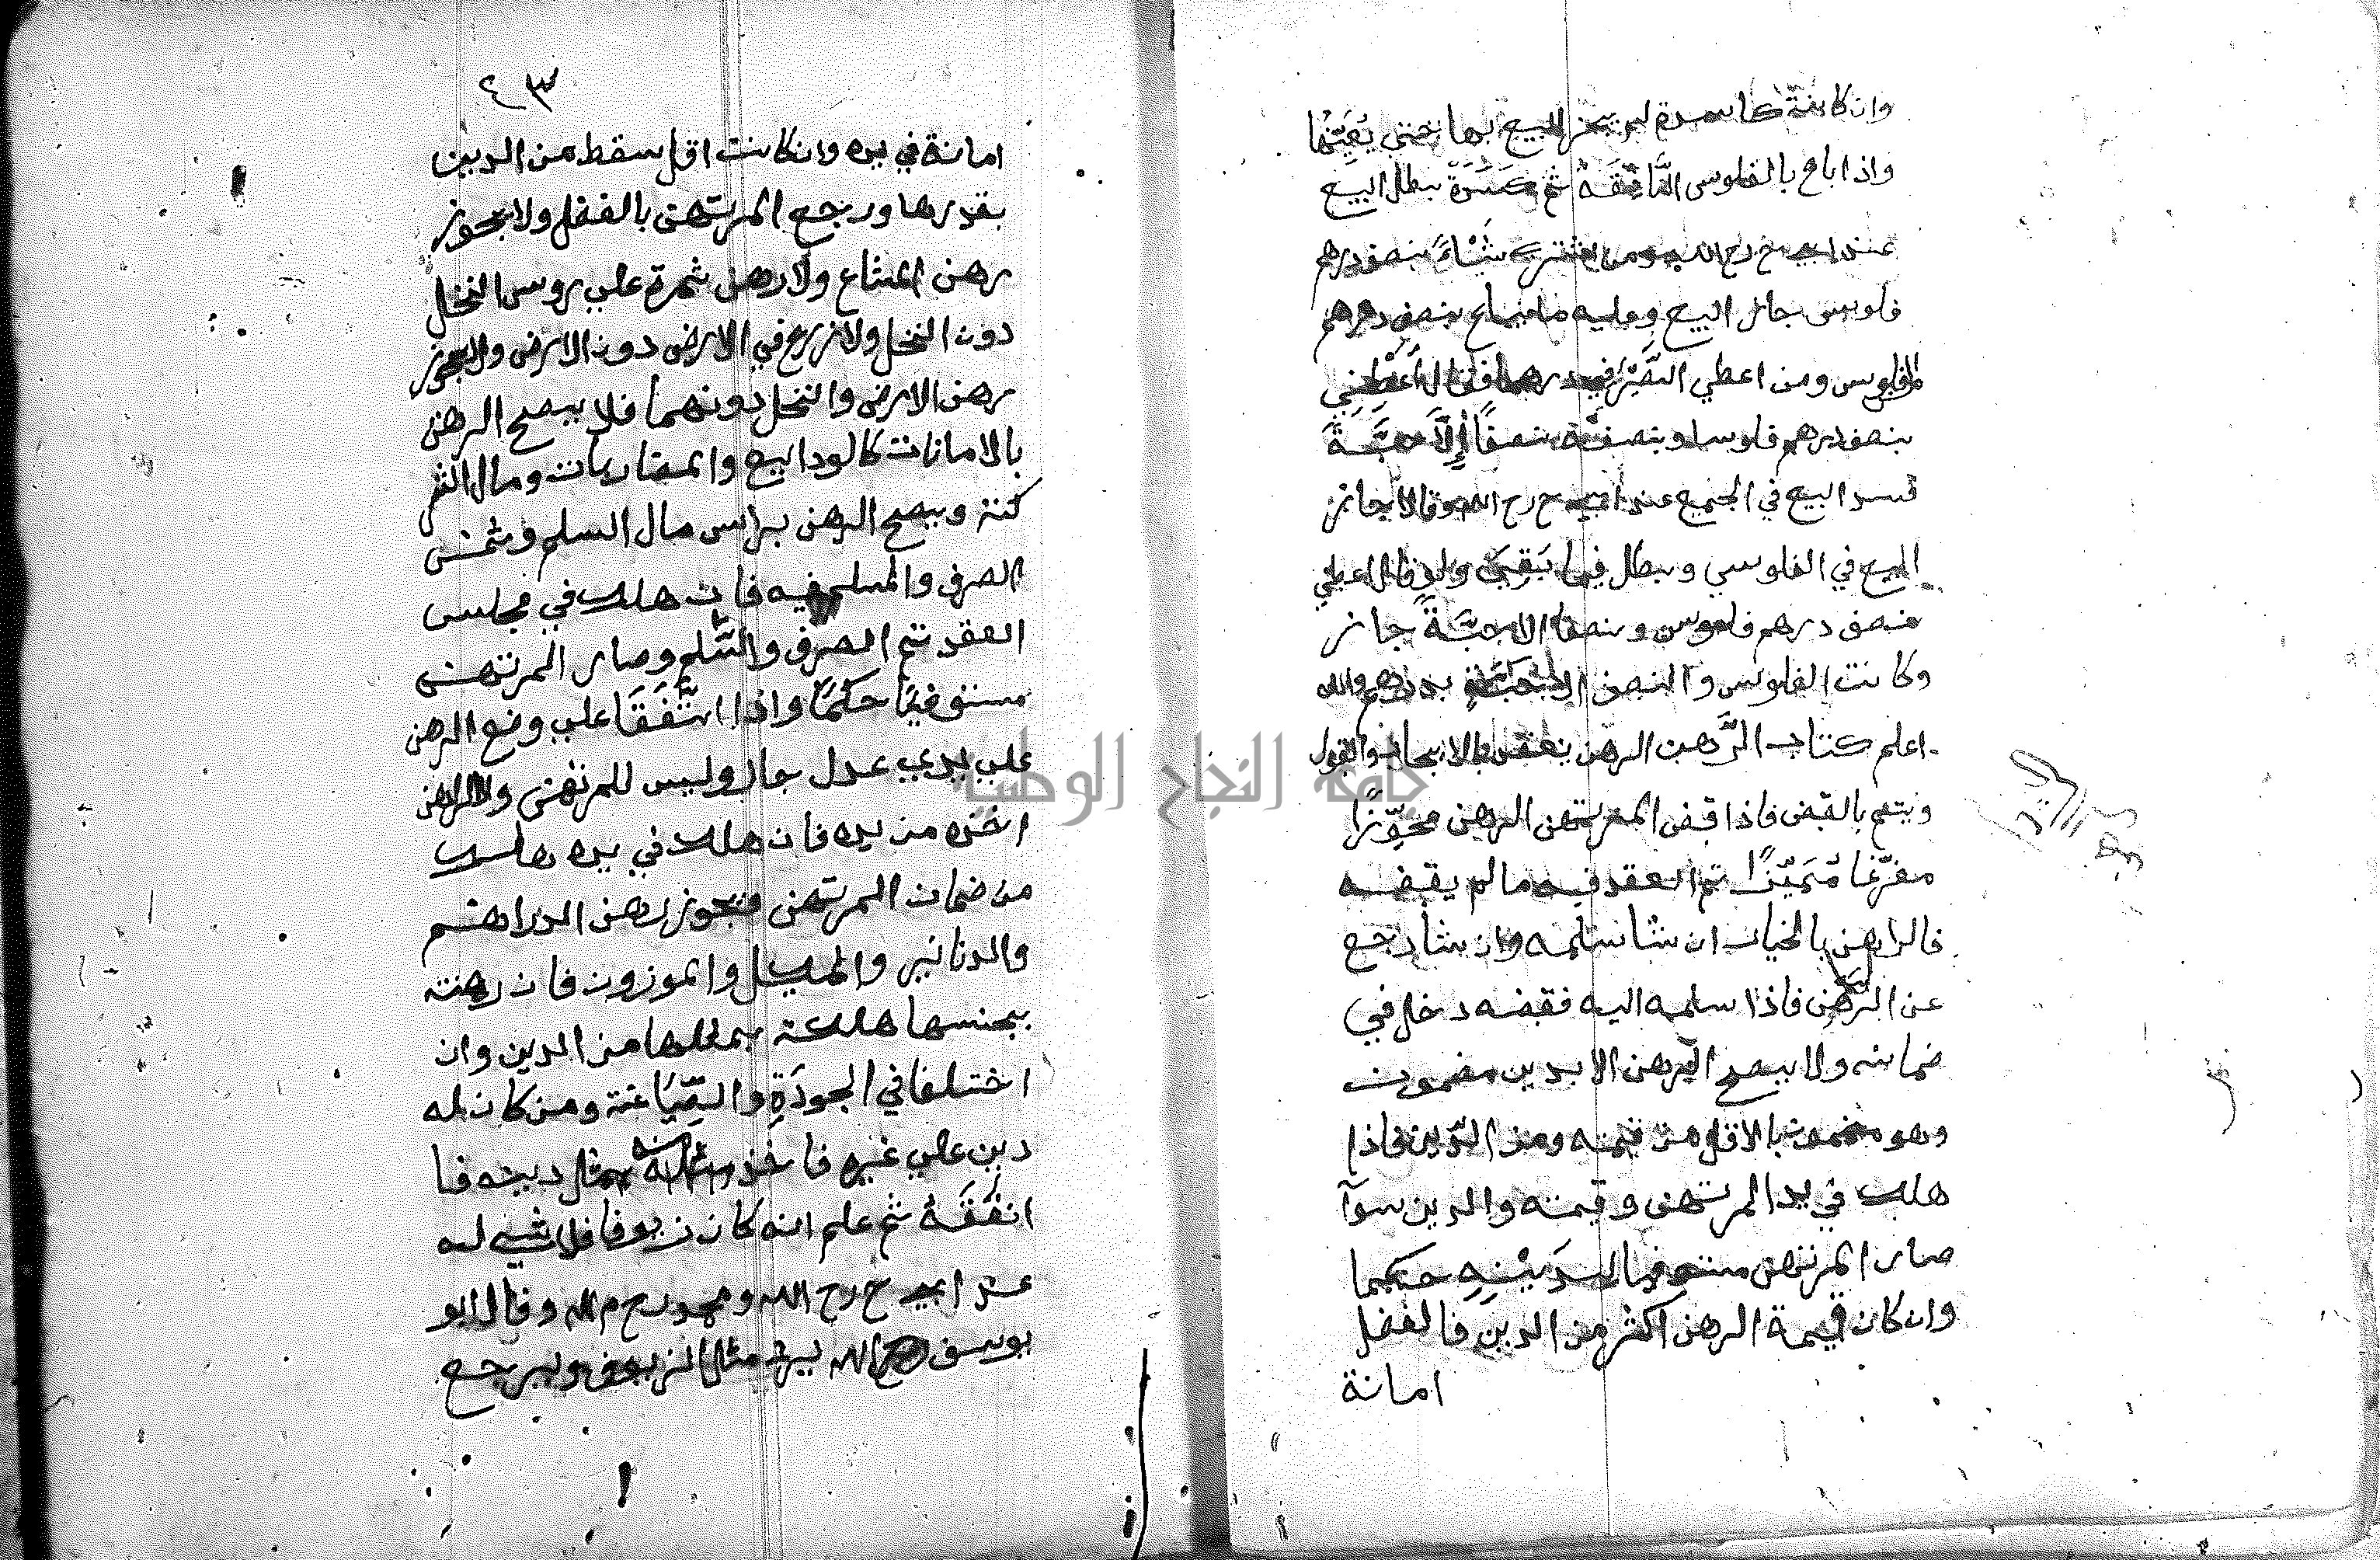 وان كانة كاسدة لم يجز البيع بها حتي يعينها
واذا باع بالفلوس النافقة ثم كسدة بطل البيع
عند ابي ح رح الله ومن اشتري شيئا بنصف درهم
فلوس جاز البيع وعليه ما يباع بنصف درهم
فلوس ومن اعطي الصيرفي درهما فقال اعطني
بنصف درهم فلوسا وبنصفه نصفا إلا حبة
فسد البيع في الجميع عند ابي ح رح الله وقالا جاز
البيع في الفلوس وبطل فيما بقي ولو قال اعطي
نصف درهم فلوس ونصفا الا حبة جاز
وكانت الفلوس والنصف الا حبة بدرهم والله
اعلم كتاب الرهن الرهن ينعقد بالايجاب والقول
ويتم بالقبض فاذا قبض المرتهن الرهن محوزا
مفرغا مميزا تم العقد فيه ما لم يقبضه
فالراهن بالخيار ان شا سلمه وان شا رجع
عن الرهن فاذا سلمه اليه فقبضه دخل في
ضمانه ولا يصح الرهن الا بدين مضمون
وهو مضمون بالاقل من قيمته ومن الدين فاذا
هلك في يد المرتهن وقيمته والدين سوآ
صار المرتهن مستوفيا لدينه حكما
وان كان قيمة الرهن اكثر من الدين فالفضل
امانة
٤٣
امانة في يده وان كانت اقل سقط من الدين
بقدرها ورجع المرتهن بالفضل ولا يجوز
رهن المشاع ولا رهن ثمرة علي روس النخل
دون النخل ولا زرع في الارض دون الارض ولا يجوز
رهن الارض والنخل دونهما فلا يصح الرهن
بالامانات كالودايع والمضاربات ومال الشر
كتة ويصح الرهن براس مال السلم وثمن
الصرف والمسلم فيه فان هلك في مجلس
العقد تم الصرف والسلم وصار المرتهن
مستوفيا حكما واذا اتفقا علي وضع الرهن
علي يدي عدل جاز وليس للمرتهن ولا للراهن
اخذه من يده فان هلك في يده هلك
من ضمان المرتهن ويجوز رهن الدراهم
والدنانير والمكيل والموزون فان رهنت
بجنسها هلكة بمثلها من الدين وان
اختلفا في الجودة والصياغة ومن كان له
دين علي غيره فاخذ منه مثل دينه فا
انفقه ثم علم انه كان زيوفا فلا شي له
عند ابي ح رح الله ومحمد رح م الله وقال ابو
يوسف رح الله يرد مثل الزيوف ويرجع